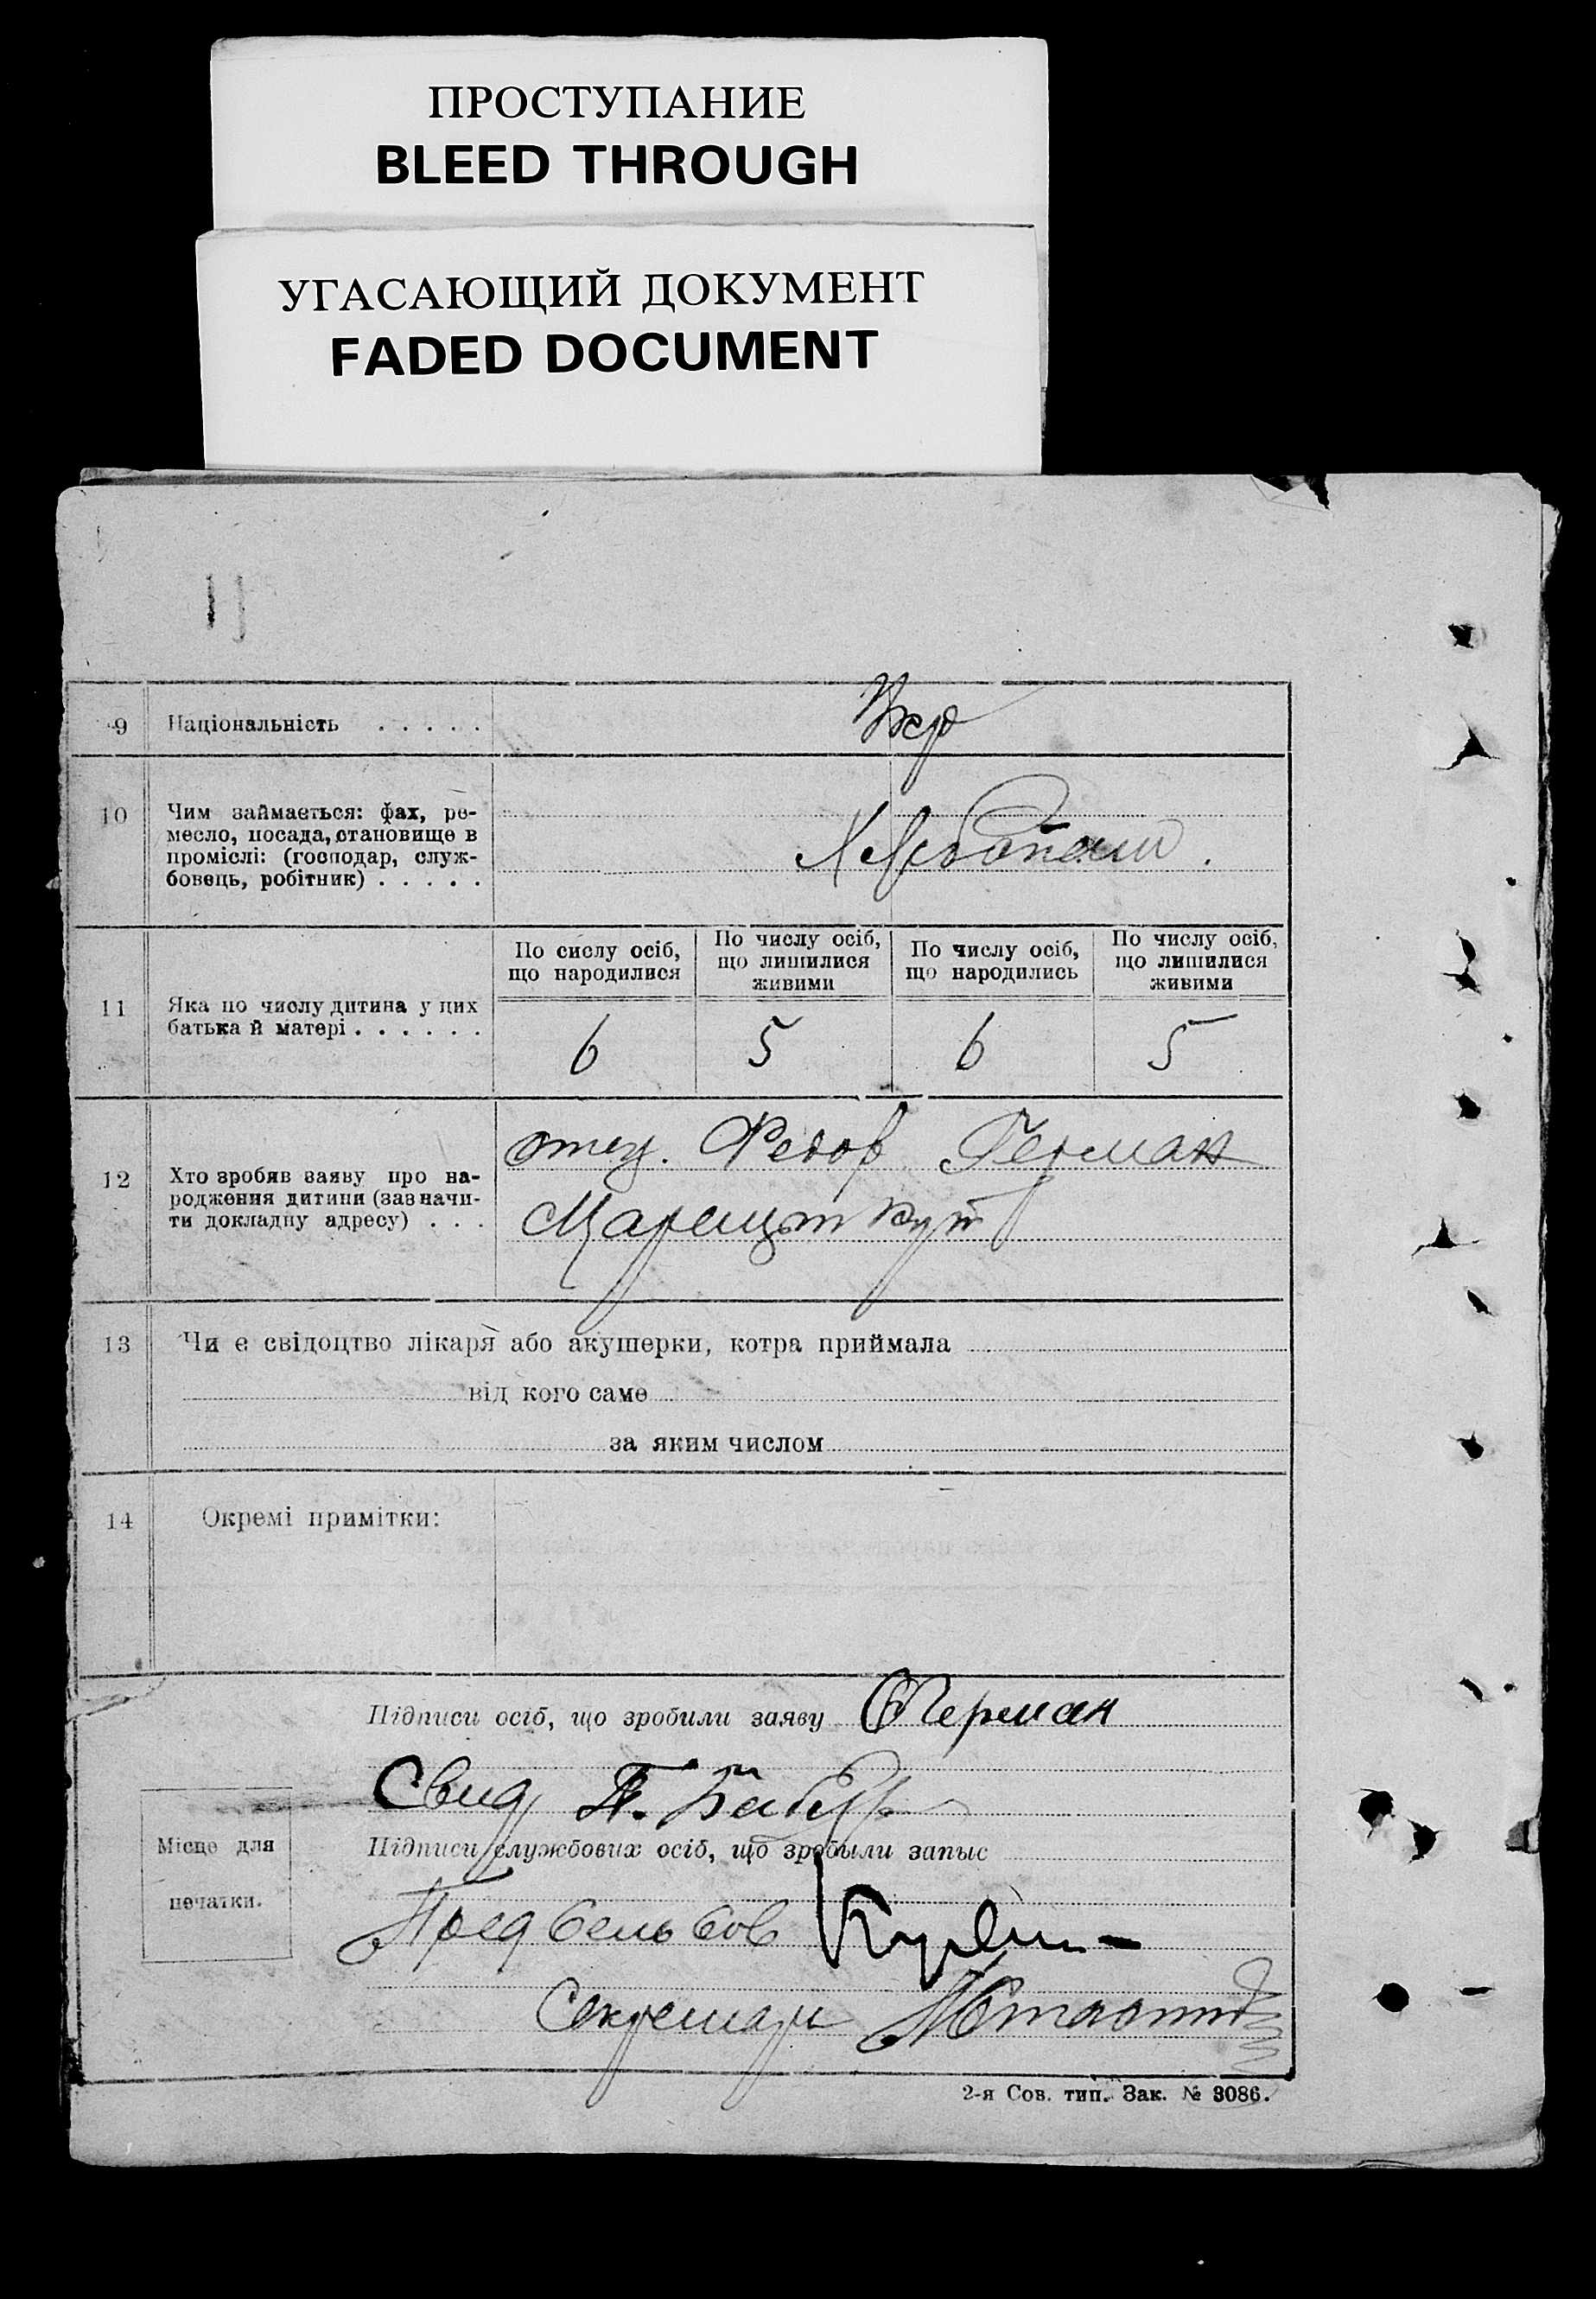 ПРОСТУПАНИЕ
BLEED THROUGH
УГАСАЮЩИЙ ДОКУМЕНТ
FADED DOCUMENT
9 Національність . . . . . Укр
10 Чим займається: фах, ре-
месло, посада, становище в
проміслі: (господар, служ-
бовець, робітник) . . . . . Хлебопаш.
По сислу осіб,
що народилися
По числу осіб,
що лишилися
живими
По числу осіб,
що народились
По числу осіб,
що лишилися
живими
11 Яка по числу дитина у цих
батька й матері . . . . . .
6 5 6 5
12 Хто зробив заяву про на-
родження дитини (зазначи-
ти докладну адресу) . . .
отец. Федор Герман
кут
13 Чи є свідоцтво лікаря або акушерки, котра приймала
від кого саме
за яким числом
14 Окремі примітки:
Підписи осіб, що зробили заяву Герман
Свид П.
Підписи службових осіб, що зробыли запыс
Місце для
печатки.
Пред сель сов
Секретарь
2-я Сов. тип. Зак. № 3086.